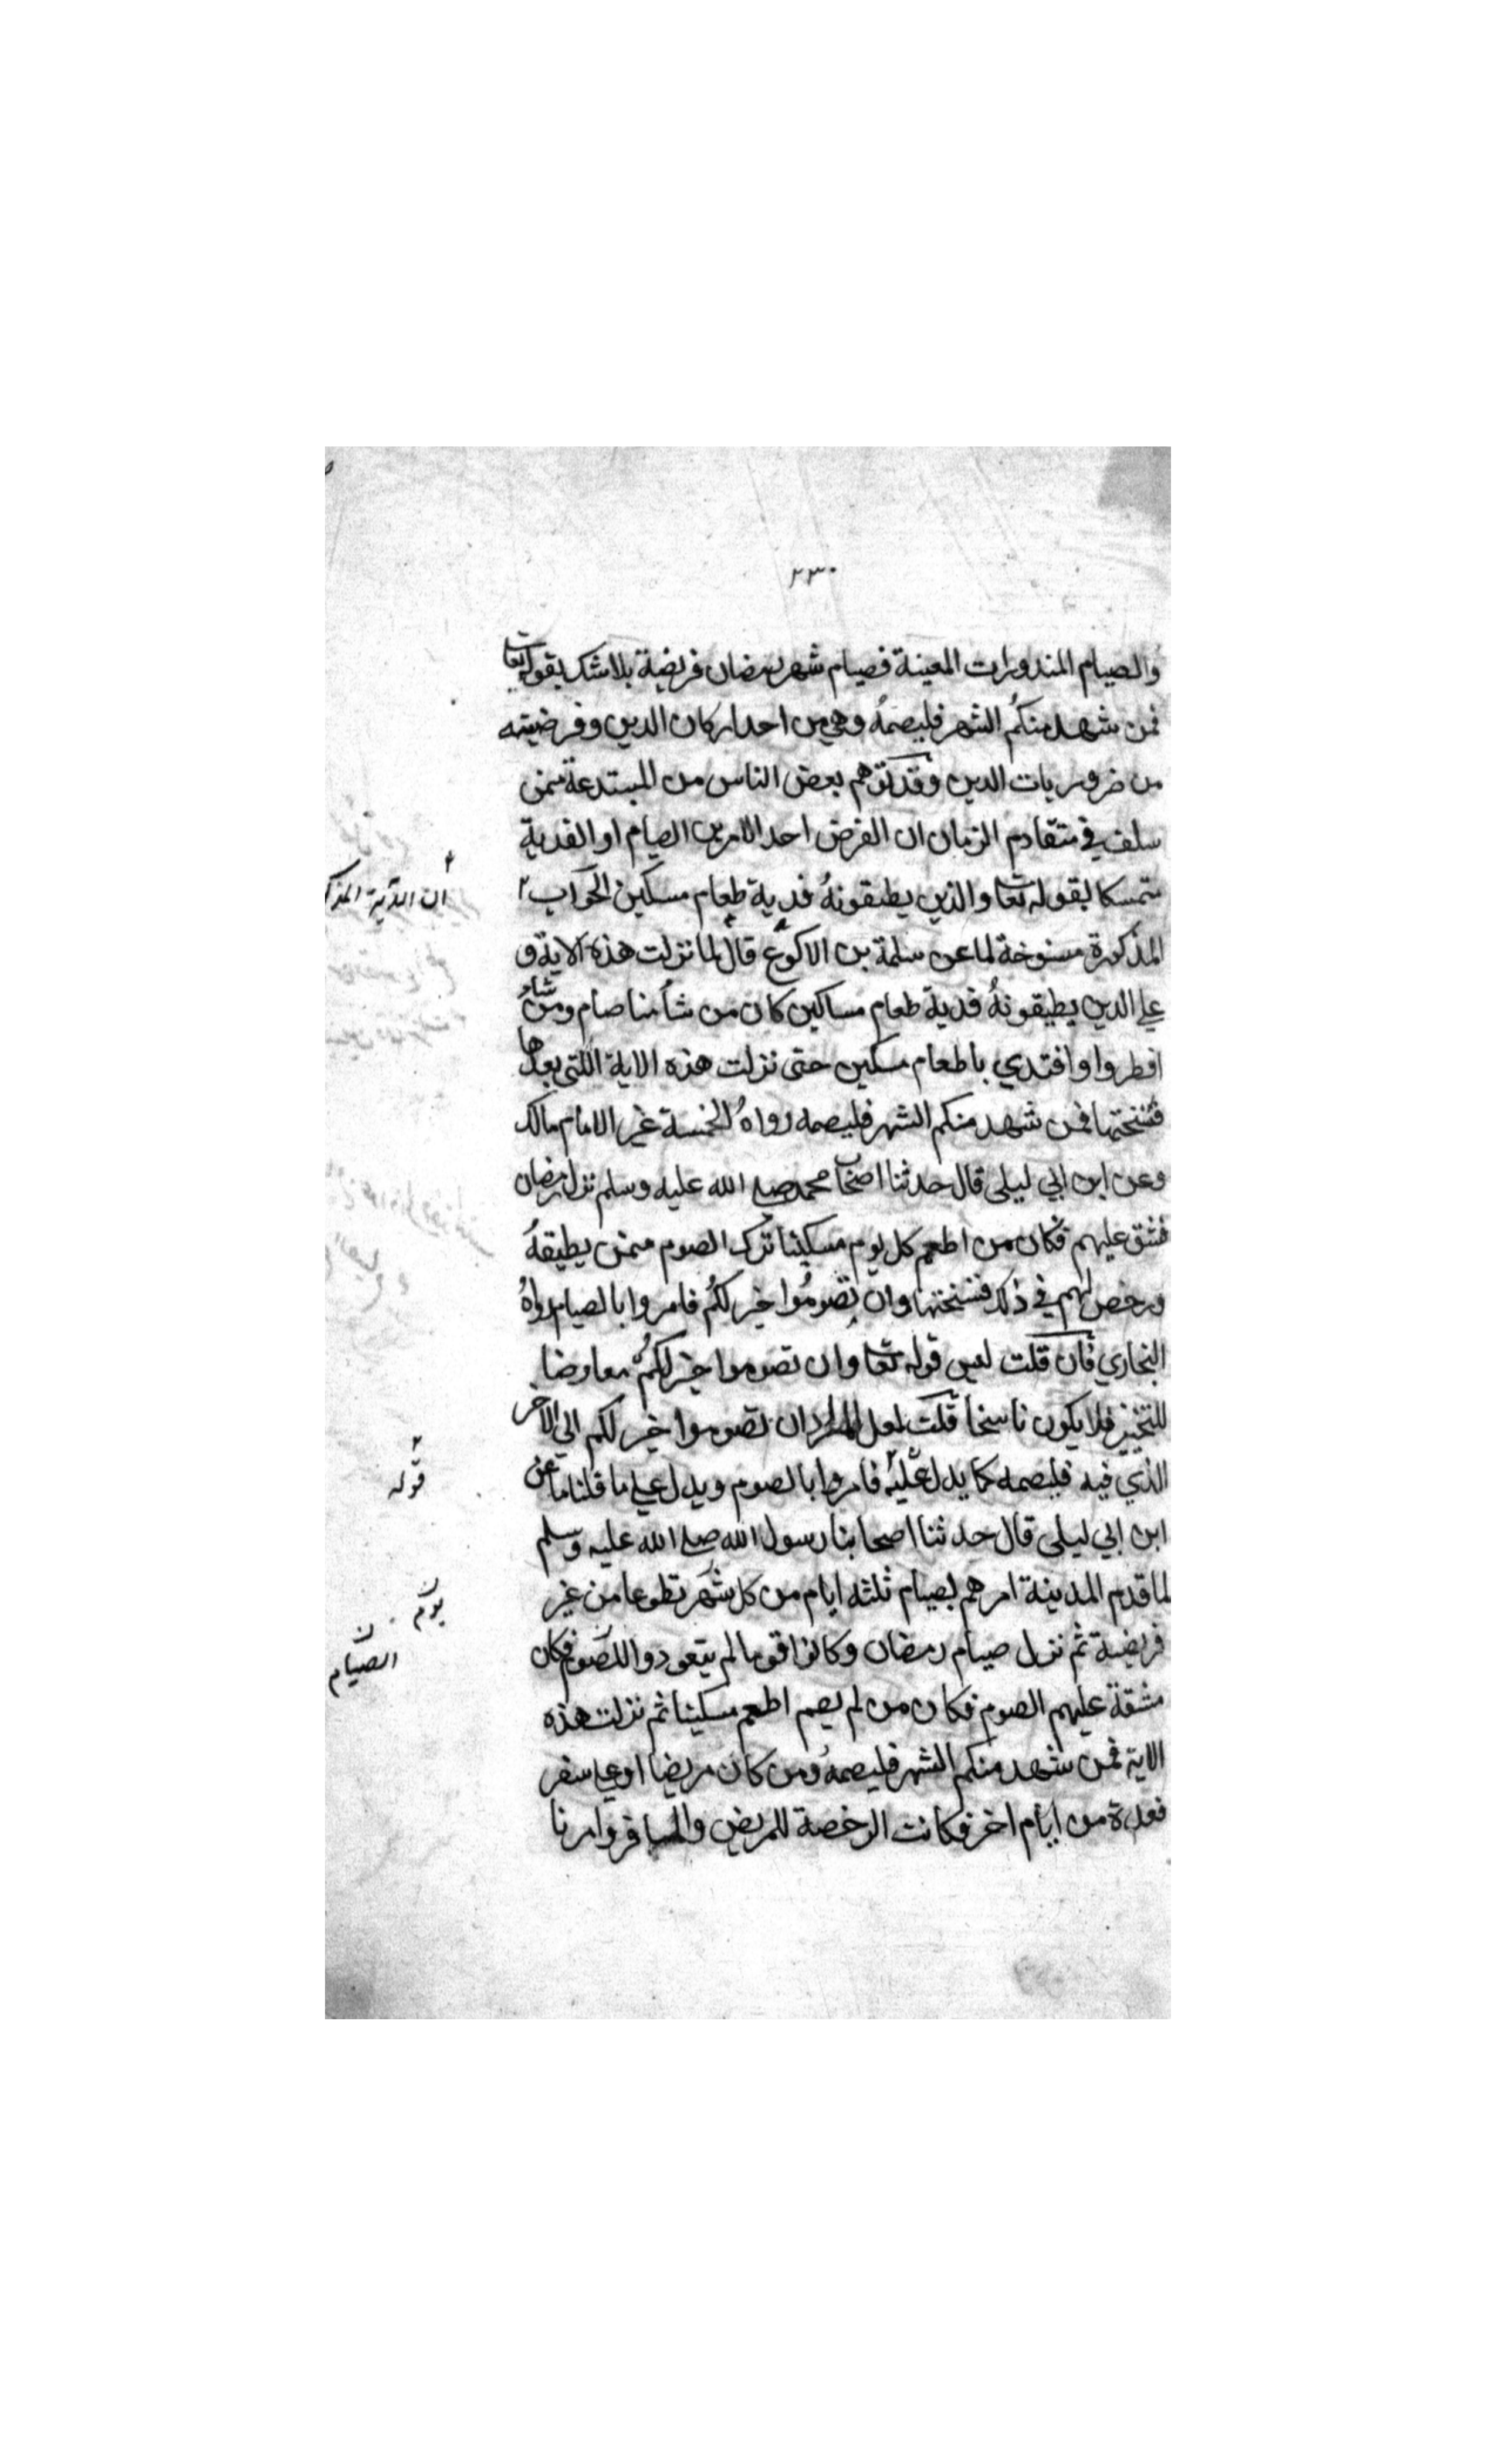 ٢٣٠
والصيام المنذورات المعينة فصيام شهر رمضان فريضة بلا شك بقوله تعا
فمن شهد منكم الشهر فليصمهُ وهي من احد اركان الدين وفرضيته
من ضروريات الدين وقد توهم بعض الناس من المبتدعة ممن
سلف في متقادم الزمان ان الفرض احد الامرين الصيام او الفدية
متمسكا بقوله تعا والذين يطيقونهُ فدية طعام مسكين الجواب ٢
ان الآية المذك
المذكورة منسوخة لما عن سلمة بن الاكوع قال لما نزلت هذه الاية و
علي الذين يطيقونهُ فدية طعام مساكين كان من شأ منا صام ومن شاء
افطروا وافتدي باطعام مسكين حتى نزلت هذه الاية اللتي بعدها
فنسختها فمن شهد منكم الشهر فليصمه رواهُ الخمسة غير الامام مالك
وعن ابن ابي ليلى قال حدثنا اصحاب محمد صلي الله عليه وسلم نزل رمضان
فشق عليهم فكان من اطعم كل يوم مسكينا ترك الصوم ممن يطيقهُ
ورخص لهم في ذلك فنسختها وان تصومُوا خير لكُم فامروا بالصيام رواهُ
البخاري فان قلت ليس قوله تعا وان تصوموا خير لكمُ معاوضا
للتخيير فلا يكون ناسخا قلت لعل المراد ان تصوموا خير لكم الي الاخر
الذي فيه فليصمه كما يدل عليه فامروا بالصوم ويدل علي ما قلنا ما عن
قوله
ابن ابي ليلى قال حدثنا اصحابنا رسول الله صلي الله عليه وسلم
لما قدم المدينة امرهم بصيام ثلثه ايام من كل شهر تطوعا من غير
يوم
فريضة ثم نزل صيام رمضان وكانوا قوما لم يتعودوا للصوم فكان
الصيام
مشقة عليهم الصوم فكان من لم يصم اطعم مسكينا ثم نزلت هذه
الاية فمن شهد منكم الشهر فليصمهُ ومن كان مريضا او علي سفر
فعدة من ايام اخر فكانت الرخصة للمريض والمسافر وامرنا